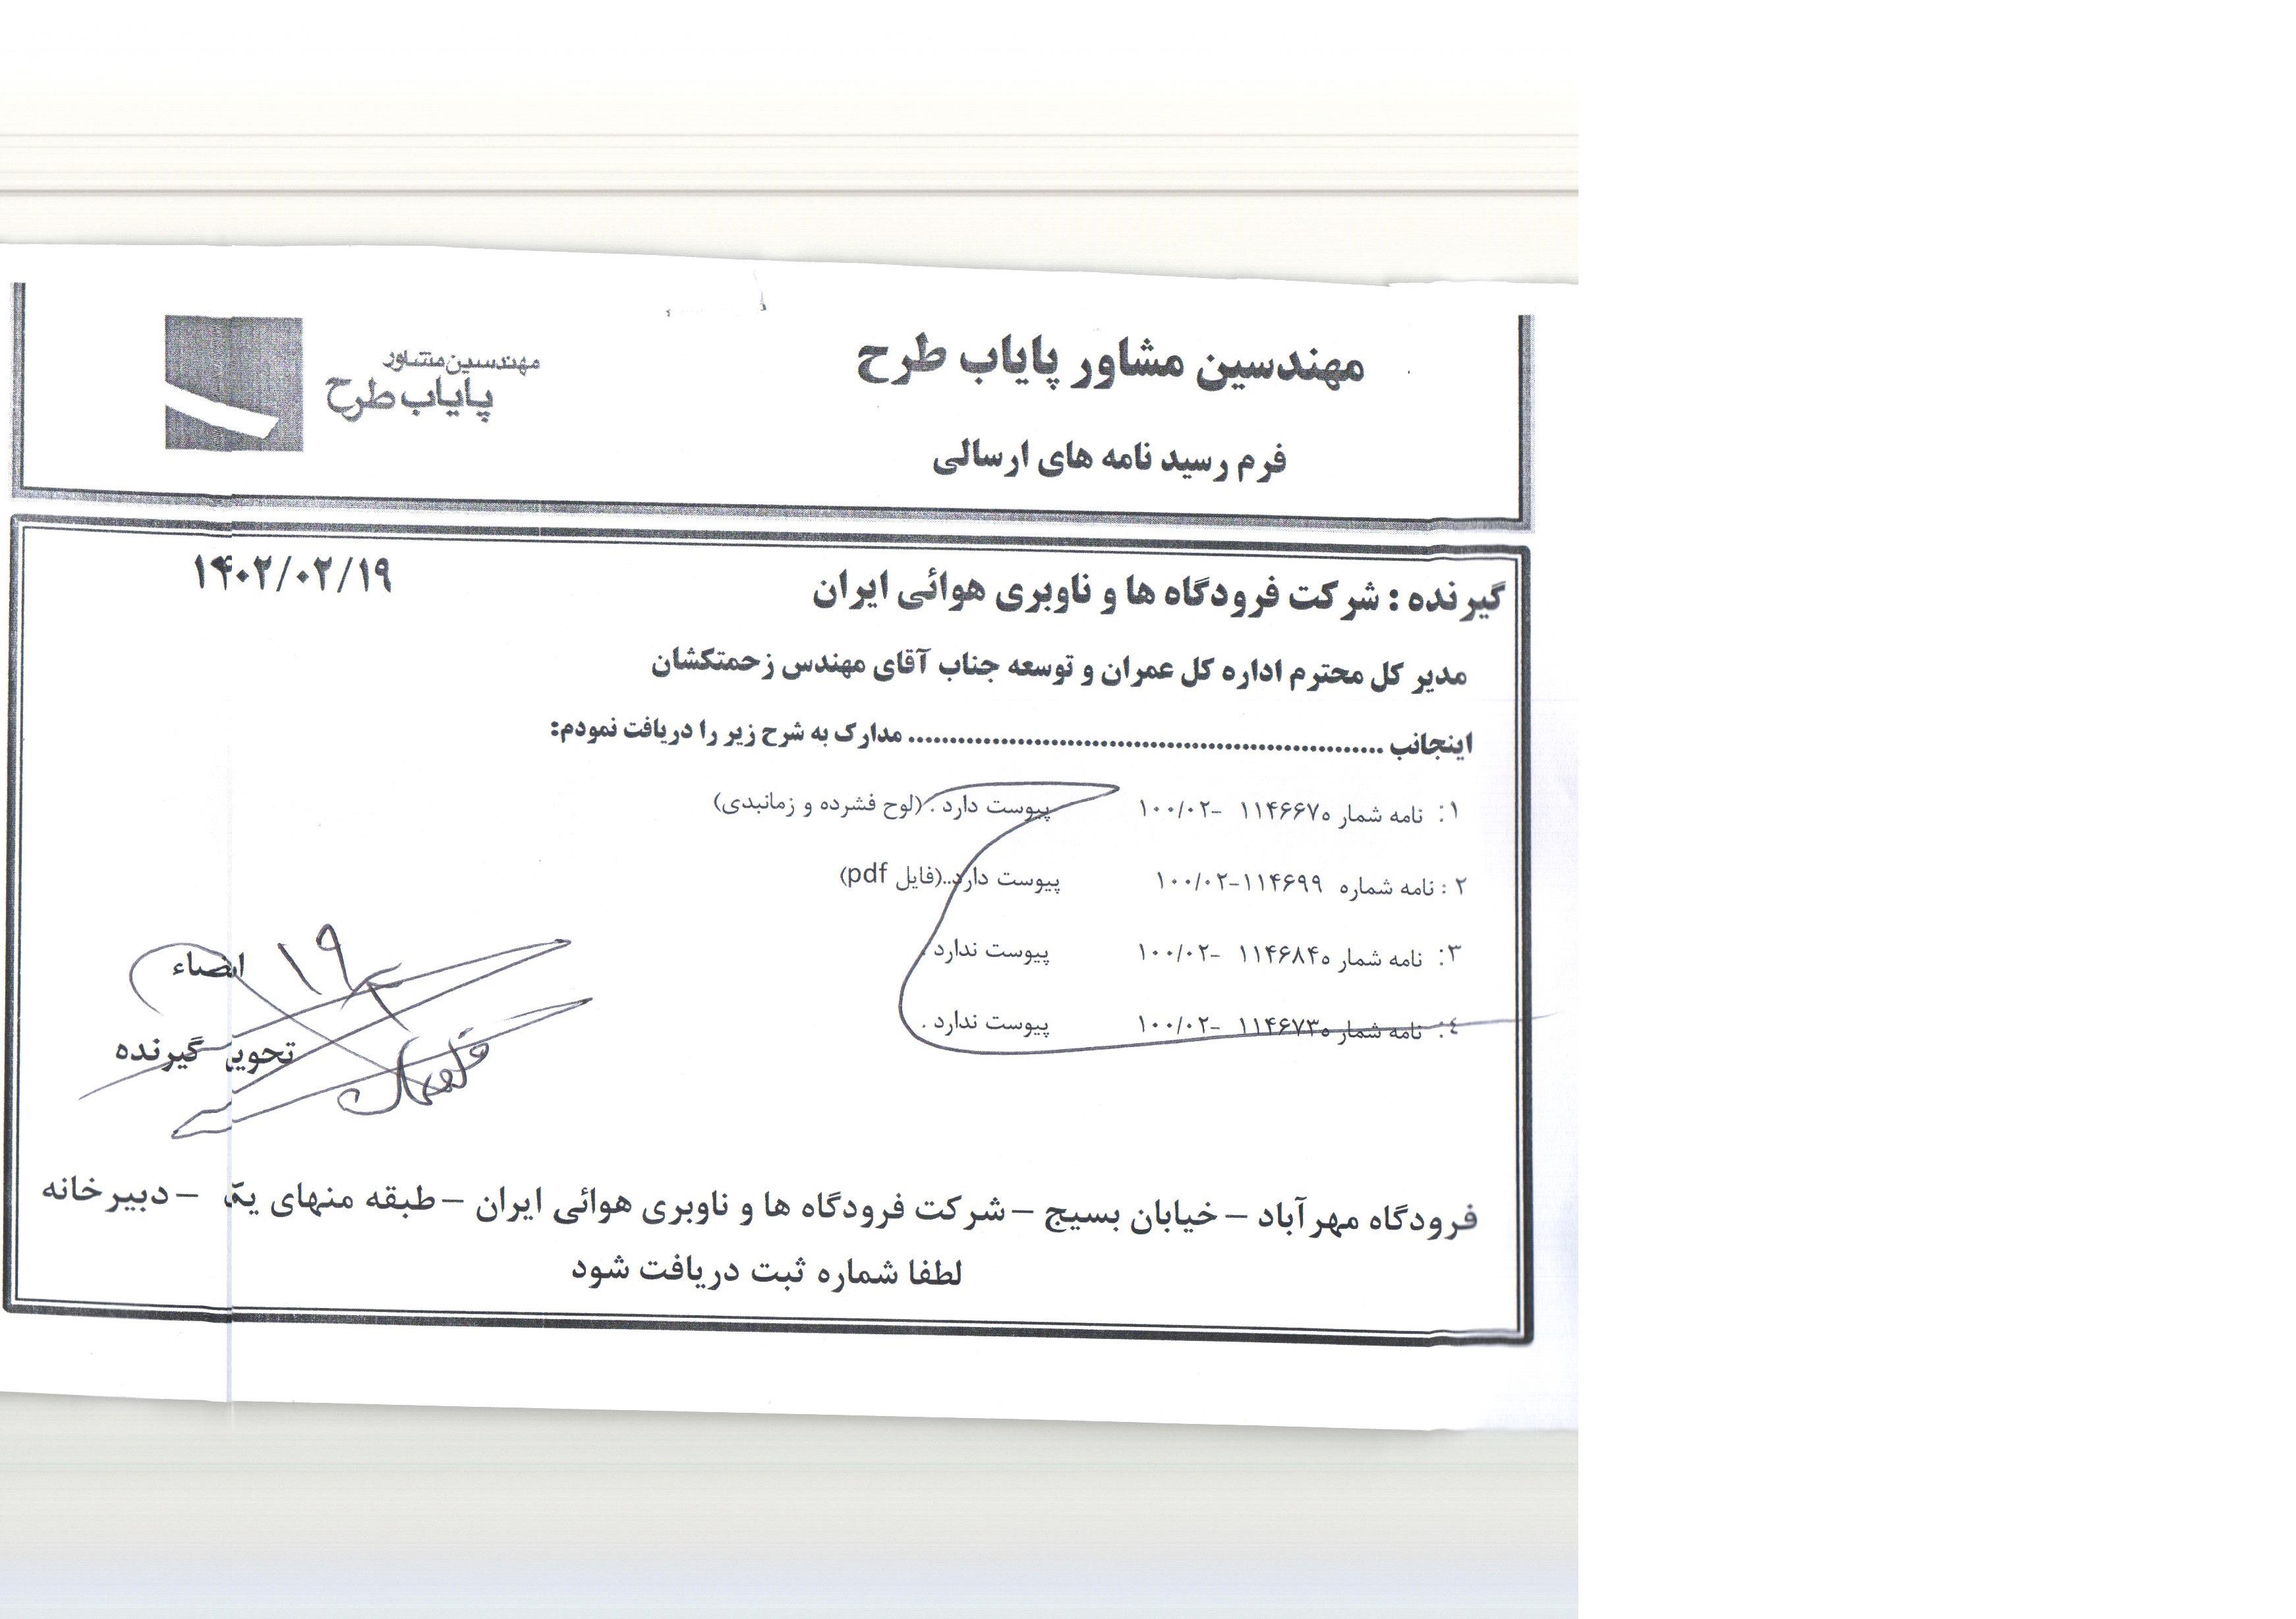 مهندسین مشاور پایاب طرح
مهندسین مشاور
پایاب طرح
فرم رسید نامه های ارسالی
گیرنده : شرکت فرودگاه ها و ناوبری هوائی ایران
۱۴۰۲/۰۲/۱۹
مدیر کل محترم اداره کل عمران و توسعه جناب آقای مهندس زحمتکشان
اینجانب .......................................................... مدارک به شرح زیر را دریافت نمودم:
۱: نامه شماره ۱۱۴۶۶۷ -۱۰۰/۰۲ پیوست دارد . (لوح فشرده و زمانبدی)
۲ : نامه شماره ۱۱۴۶۹۹-۱۰۰/۰۲ پیوست دارد..(فایل pdf)
۳: نامه شماره ۱۱۴۶۸۴ -۱۰۰/۰۲ پیوست ندارد .
٤: نامه شماره ۱۱۴۶۷۳ -۱۰۰/۰۲ پیوست ندارد .
امضاء
۱۹
تحویل گیرنده
فرودگاه مهرآباد – خیابان بسیج – شرکت فرودگاه ها و ناوبری هوائی ایران – طبقه منهای یک – دبیرخانه
لطفا شماره ثبت دریافت شود